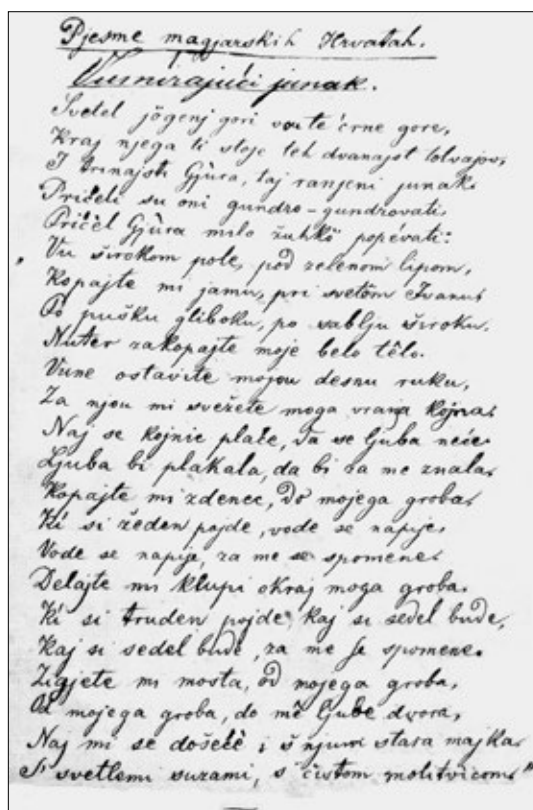 Pjesme magjarskih Hrvatah.
Vumirajući junak.
Svetel jögenj gori vu te črne gore,
Kraj njega ti stoje teh dvanajst tolvajov,
I trinajsti Gjüra, taj ranjeni junak.
Pričeli su oni gundro-gundrovati,
Pričel Gjüra milo žuhkö popévati:
„Vu širokom pole, pod zelenom lipom,
Kopajte mi jamu, pri svetöm Ivanu.
Po pušku gliboku, po sablju široku.
Nuter zakopajte moje belo tělo.
Vune ostavite mojou desnu ruku,
Za njou mi svežete moga vranja kojna.
Naj se kojnic plače, da se ljuba neče.
Ljuba bi plakala, da bi za me znala.
Kopajte mi zdenec, do mojega groba.
Ki si žeden pojde, vode se napije,
Vode se napije, za me se spomene.
Delajte mi klupi okraj moga groba.
Ki si truden pojde, kaj si sedel bude,
Kaj si sedel bude, za me se spomene.
Zigjete mi mosta, od mojega groba,
Od mojega groba, do mě ljube dvora,
Naj mi se došeče i š njum stara majka.
S' svetlemi suzami, s' čistom molitvicom."